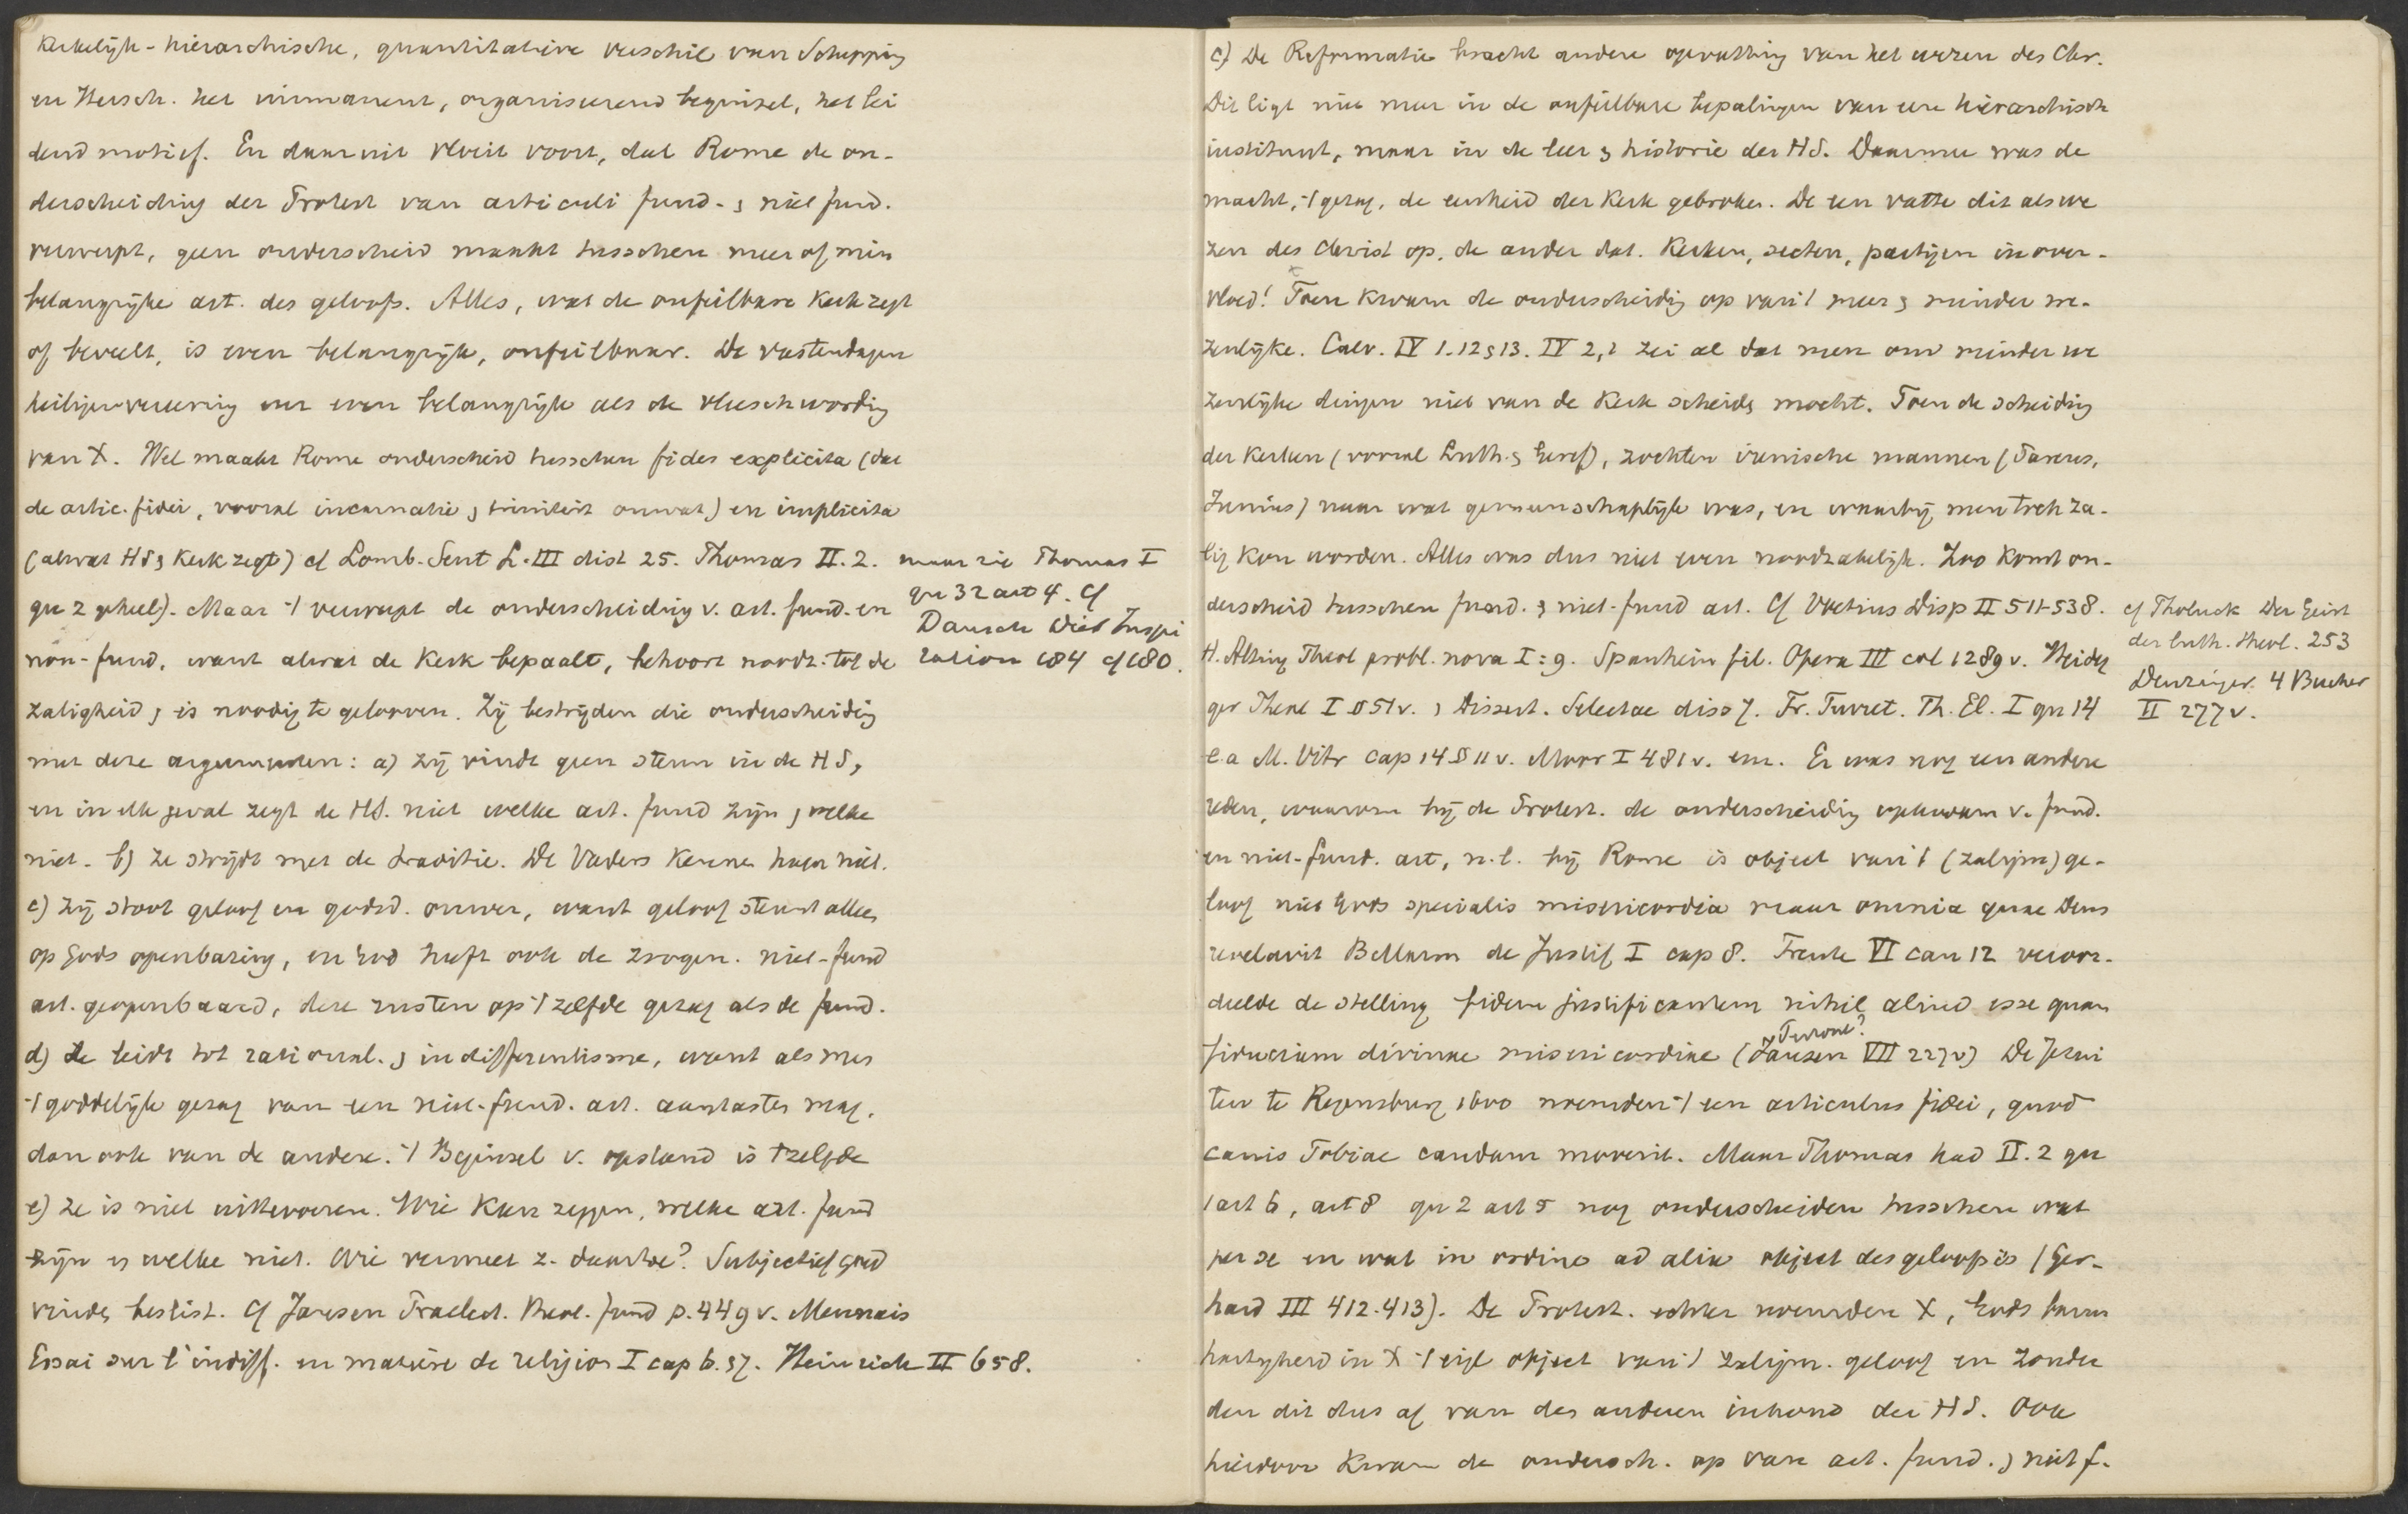 Kerkelijk-hierarchische, quantitatieve verschil van Schepping
en Hersch. het immanent, organiserend beginsel, het lei
dend motief. En daaruit vloeit voort, dat Rome de on-
derscheiding der Protest van articuli fund. & niet fund.
verwerpt, geen onderscheid maakt tusschen meer of min
belangrijke art. des geloofs. Alles, wat de onfeilbare Kerk zegt
of beveelt, is even belangrijk, onfeilbaar. De vastendagen
heiligenvereering enz even belangrijk als de vleeschwording
van X. Wel maakt Rome onderscheid tusschen fides explicita (dat
de artic. fidei, vooral incarnatie & triniteit omvat) en implicita
(alwat HS & Kerk zegt) cf Lomb. Sent L. III dist 25. Thomas II. 2.
qu 2 geheel). Maar 't verwerpt de onderscheiding v. art. fund. en
non-fund, want alwat de Kerk bepaalt, behoort noodz. tot de
zaligheid & is noodig te gelooven. Zij bestrijden die onderscheidig
met deze argumenten: a) zij vindt geen steun in de HS,
en in elk geval zegt de HS. niet welke art. fund zijn & welke
niet. b) Ze strijdt met de traditie. De Vaders kennen haar niet.
c) Zij stoot geloof en godsd. omver, want geloof steunt alleen
op Gods openbaring, en God heeft ook de zoogen. niet-fund
art. geopenbaard, deze rusten op 't zelfde gezag als de fund.
d) Ze leidt tot rational. & indifferentisme, want als men
't goddelijk gezag van een niet-fund. art. aantasten mag,
dan ook van de andere. 't Beginsel v. opstand is 't zelfde
e) Ze is niet uittevoeren. Wie kan zeggen, welke art. fund
zijn en welke niet. Wie vermeet z. daartoe? Subjectief goed
vinden beslist. Cf Jansen Praelect. Theol. fund p. 449 v. Mennais
Essai sur l'indiff. en matière de religion I cap 6. & 7. Heinrich II 658.
maar zie Thomas I
qu 32 art 4. Cf
Dausch Die Inspi
ration 184 cf 180.
c) De Reformatie bracht andere opvatting van het wezen des Chr.
Dit ligt niet meer in de onfeilbare bepalingen van een hierarchisch
instituut, maar in de leer & historie der HS. Daarmee was de
macht, 't gezag, de eenheid der Kerk gebroken. De een vatte dit als we
zen des Christ op, de ander dat. Kerken, secten, partijen in over-
vloed! Toen kwam de onderscheidig op van 't meer & minder we-
zenlijke. Calv. IV 1. 12 & 13. IV 2, 1 zei al dat men om minder we
zenlijke dingen niet van de Kerk scheiden mocht. Toen de scheiding
der Kerken (vooral Luth. & Geref), zochten irenische mannen (Pareus,
Junius) naar wat gemeenschaplijk was, en waarbij men toch za-
lig kon worden. Alles was dus niet even noodzakelijk. Zoo komt on-
derscheid tusschen fund. & niet-fund art. Cf Voetius Disp II 511-538.
H. Alting Theol probl. nova I: 9. Spanheim fil. Opera III col 1289 v. Heideg
ger Theol I § 51 v. & Dissert. Selectae diss 7. Fr. Turret. Th. El. I qu 14
e.a M. Vitr cap 14 § 11 v. Moor I 481 v. enz. Er was nog een andere
reden, waarom bij de Protest. de onderscheidig opkwam v. fund.
en niet-fund. art, n.l. bij Rome is object van 't (zaligm) ge-
loof niet Gods specialis misericordia maar omnia quae Deus
revelavit Bellarm de Justif I cap 8. Trente VI can 12 veroor-
deelde de stelling fidem justificantem nihil aliud esse quam
fiduciam divinae misericordiae (Jansen VII 227 v) De Jezui
Perrone?
ten te Regensburg 1600 noemden 't een articulus fidei, quod
canis Tobiae caudam moverit. Maar Thomas had II. 2 qu
1 art 6, art 8 qu 2 art 5 nog onderscheiden tusschen wat
per se en wat in ordine ad alia object des geloofs is (Ger-
hard III 412.413). De Protest. echter noemden X, Gods barm
hartigheid in X 't eigl object van 't zaligm. geloof en zonder
den dit dus af van den anderen inhoud der HS. Ook
hierdoor kwam de ondersch. op van art. fund. & niet f.
cf Tholuck Der Geist
der luth. theol. 253
Denzinger. 4 Bücher
II 277 v.